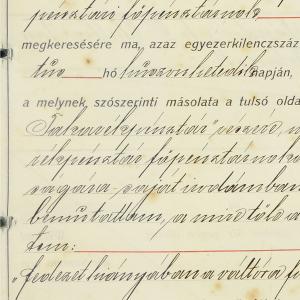 pénztári főpénztárnok
megkeresésére ma, azaz egyezerkilenczszáz
hó huszonhetedik napján,
a melynek szószerinti másolata a tulsó olda
Takarékpénztár" részére,
főpénztárnok
ságára saját irodámban
bemutattam, a mire tőle a
tem:
„fedezet hiányában a váltóra